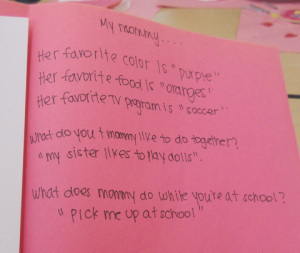 My mommy....
Her favorite color is "purple"
Her favorite food is "oranges'
Her favorite TV program is "soccer"
What do you & mommy like to do together?
"my sister likes to play dolls".
What does mommy do while you're at school?
"pick me up at school"